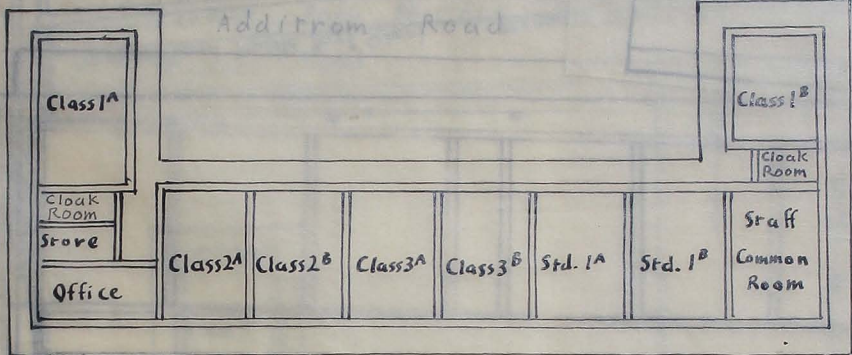 Additrom Road
Class 1A
Class 1B
Cloak
Room
Cloak
Room
Store
Office
Class 2A
Class 2B
Class 3A
Class 3B
Std. 1A
Std. 1B
Staff
Common
Room